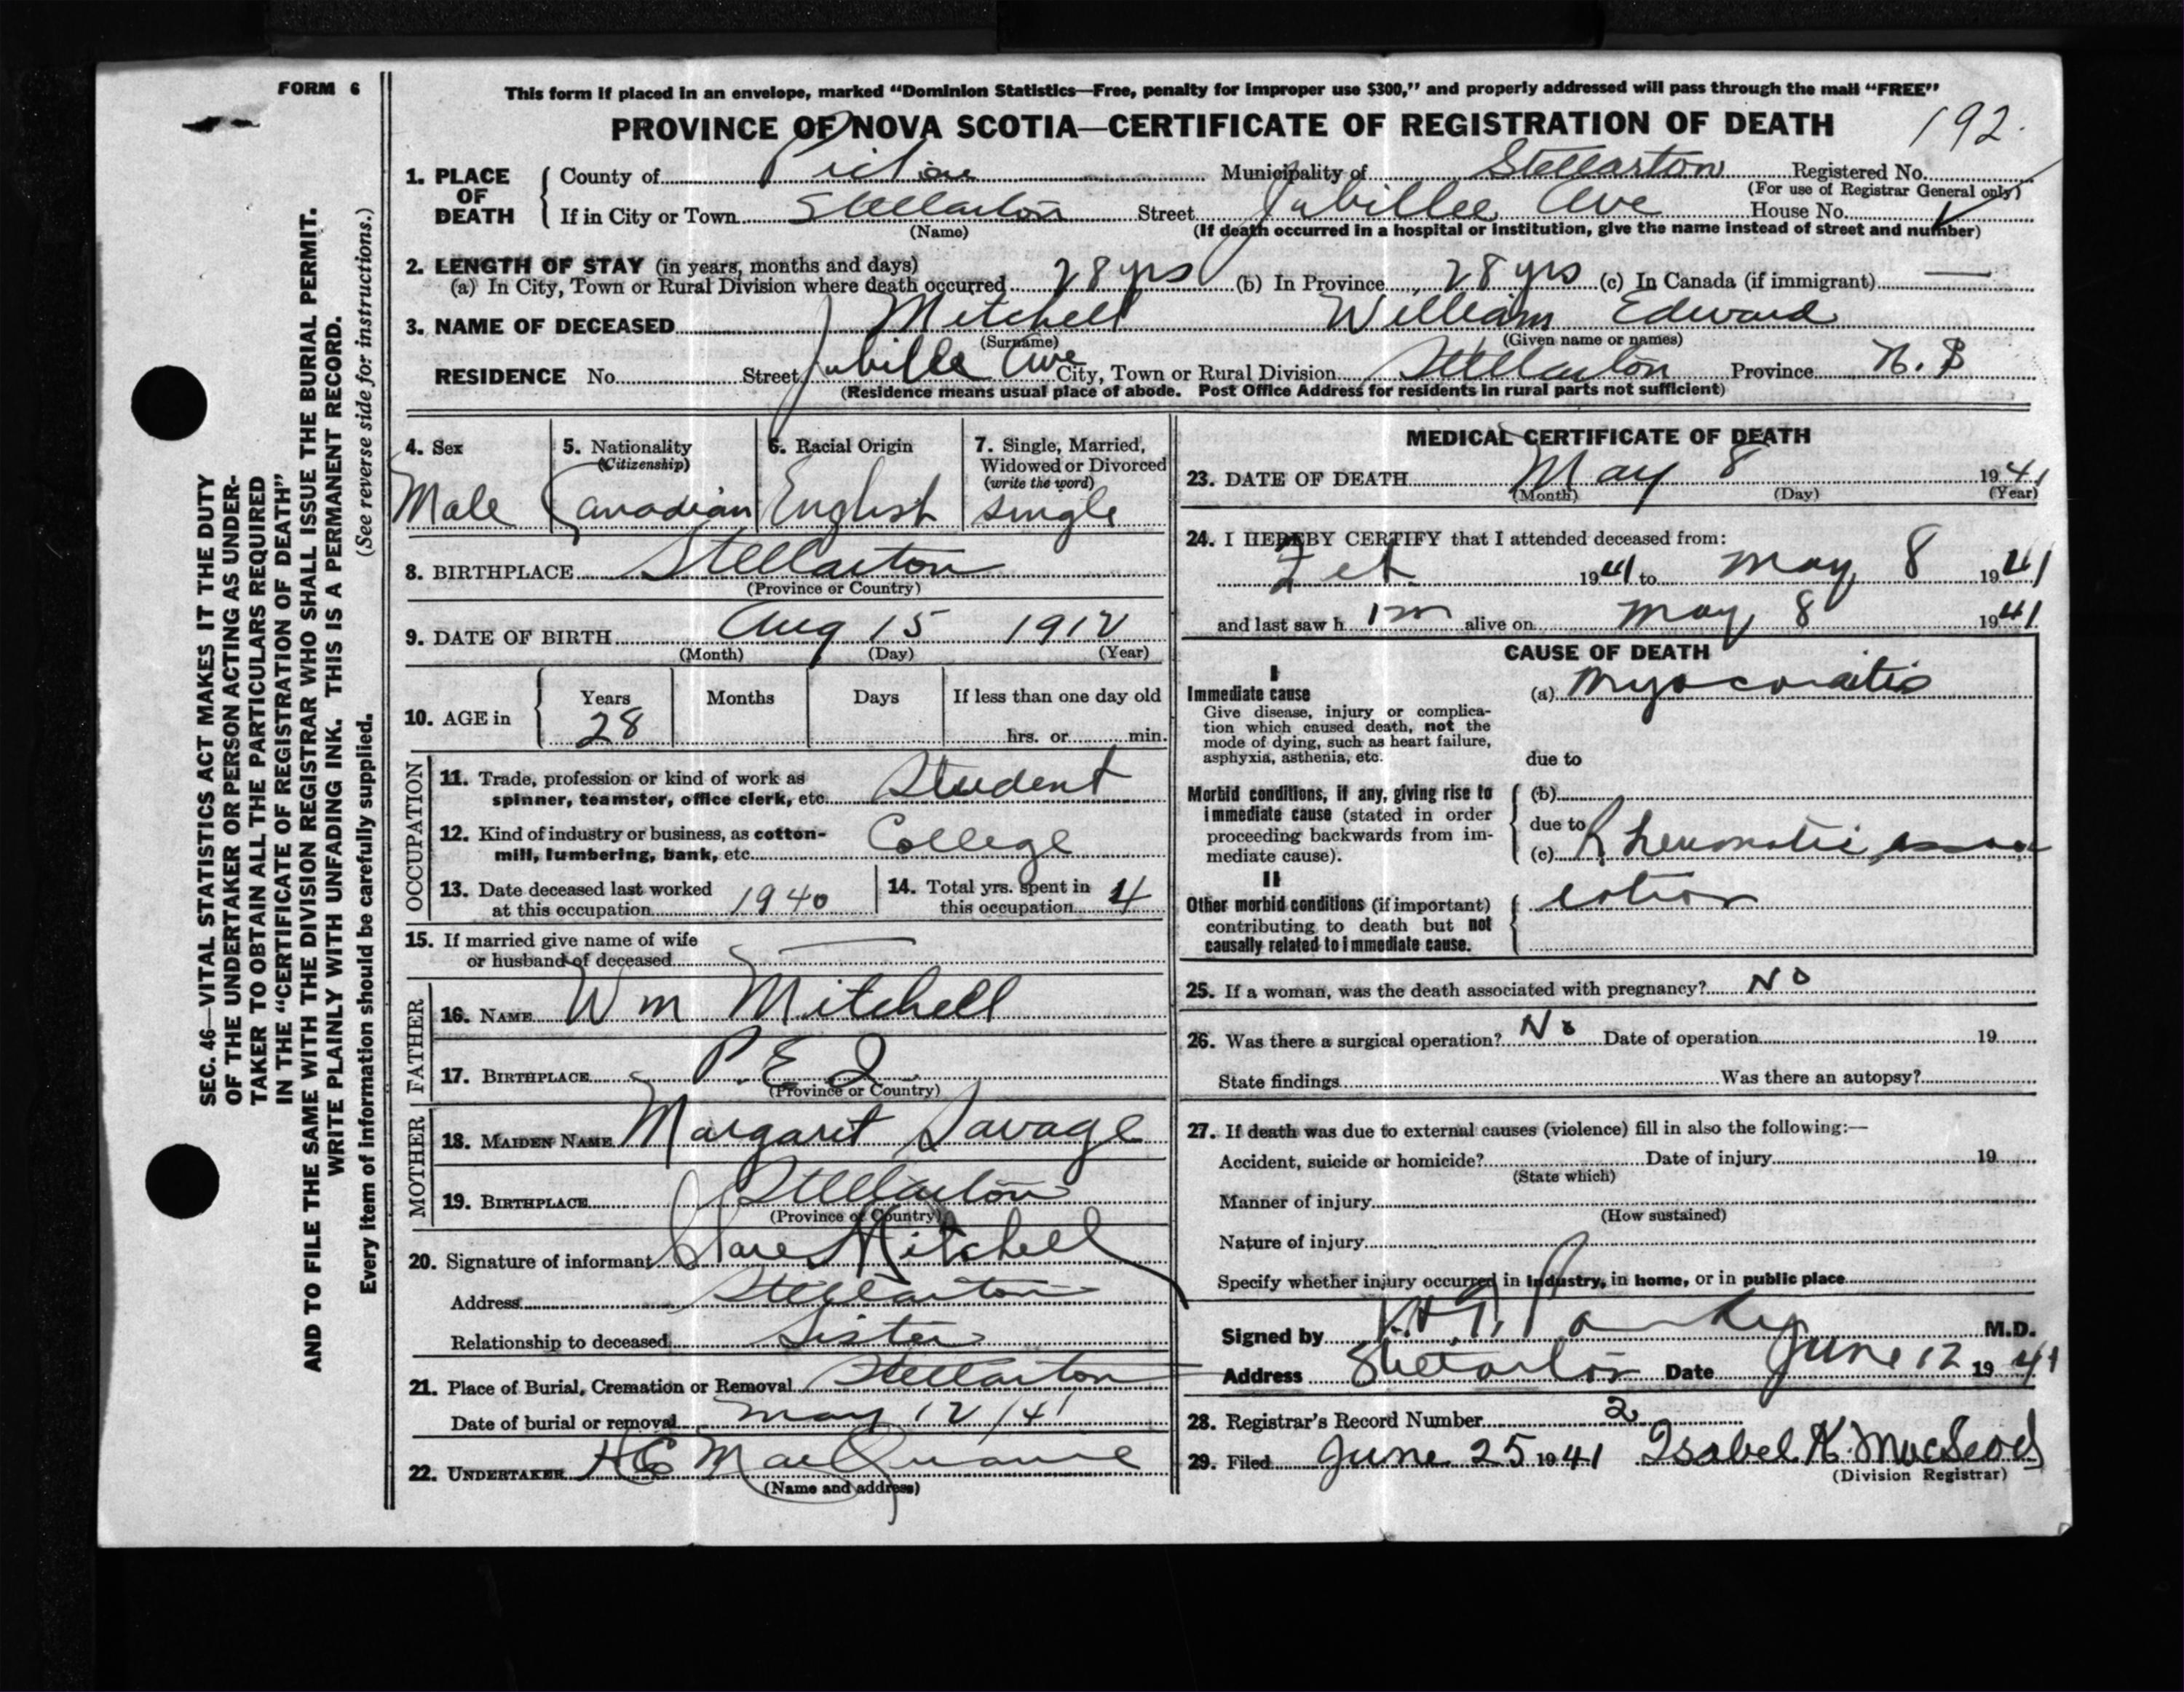 FORM 6
This form if placed in an envelope, marked "Dominion Statistics—Free, penalty for improper use $300," and properly addressed will pass through the mail "FREE"
PROVINCE OF NOVA SCOTIA—CERTIFICATE OF REGISTRATION OF DEATH 192
1. PLACE OF DEATH
County of Pictou Municipality of Stellarton Registered No.
(For use of Registrar General only)
If in City or Town Stellarton Street Jubillee Ave House No.
(Name) (If death occurred in a hospital or institution, give the name instead of street and number)
2. LENGTH OF STAY (in years, months and days)
(a) In City, Town or Rural Division where death occurred 28 yrs (b) In Province 28 yrs (c) In Canada (if immigrant) —
3. NAME OF DECEASED Mitchell William Edward
(Surname) (Given name or names)
RESIDENCE No. Street Jubille Ave City, Town or Rural Division Stellarton Province N. S
(Residence means usual place of abode. Post Office Address for residents in rural parts not sufficient)
4. Sex
Male
5. Nationality
(Citizenship)
Canadian
6. Racial Origin
English
7. Single, Married,
Widowed or Divorced
(write the word)
single
8. BIRTHPLACE Stellarton
(Province or Country)
9. DATE OF BIRTH Aug 15 1912
(Month) (Day) (Year)
10. AGE in
Years Months Days If less than one day old
28 hrs. or min.
OCCUPATION
11. Trade, profession or kind of work as
spinner, teamster, office clerk, etc. Student
12. Kind of industry or business, as cotton-
mill, lumbering, bank, etc. College
13. Date deceased last worked
at this occupation 1940
14. Total yrs. spent in
this occupation 4
15. If married give name of wife
or husband of deceased
FATHER
16. NAME Wm Mitchell
17. BIRTHPLACE P. E I.
(Province or Country)
MOTHER
18. MAIDEN NAME Margaret Savage
19. BIRTHPLACE Stellarton
(Province or Country)
20. Signature of informant Clare Mitchell
Address Stellarton
Relationship to deceased Sister
21. Place of Burial, Cremation or Removal Stellarton
Date of burial or removal May 12/41
22. UNDERTAKER
(Name and address)
MEDICAL CERTIFICATE OF DEATH
23. DATE OF DEATH May 8 1941
(Month) (Day) (Year)
24. I HEREBY CERTIFY that I attended deceased from:
Feb 1941 to May 8 1941
and last saw h im alive on May 8 1941
CAUSE OF DEATH
I
Immediate cause
Give disease, injury or complica-
tion which caused death, not the
mode of dying, such as heart failure,
asphyxia, asthenia, etc.
(a) Myocarditis
due to
Morbid conditions, if any, giving rise to
immediate cause (stated in order
proceeding backwards from im-
mediate cause).
(b)
due to
(c) Rheumatic
II
Other morbid conditions (if important)
contributing to death but not
causally related to immediate cause.
25. If a woman, was the death associated with pregnancy? No
26. Was there a surgical operation? No Date of operation 19
State findings Was there an autopsy?
27. If death was due to external causes (violence) fill in also the following:—
Accident, suicide or homicide? Date of injury 19
(State which)
Manner of injury
(How sustained)
Nature of injury
Specify whether injury occurred in industry, in home, or in public place
Signed by M.D.
Address Stellarton Date June 12 1941
28. Registrar's Record Number 2
29. Filed June 25 1941 Isabel K. MacLeod
(Division Registrar)
SEC. 46—VITAL STATISTICS ACT MAKES IT THE DUTY
OF THE UNDERTAKER OR PERSON ACTING AS UNDER-
TAKER TO OBTAIN ALL THE PARTICULARS REQUIRED
IN THE "CERTIFICATE OF REGISTRATION OF DEATH"
AND TO FILE THE SAME WITH THE DIVISION REGISTRAR WHO SHALL ISSUE THE BURIAL PERMIT.
WRITE PLAINLY WITH UNFADING INK. THIS IS A PERMANENT RECORD.
Every item of information should be carefully supplied. (See reverse side for instructions.)